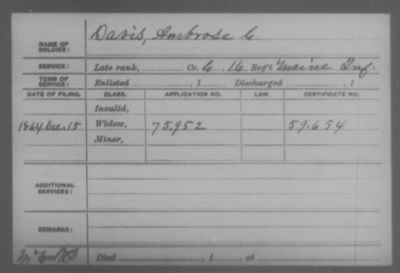 Davis, Ambrose C.
NAME OF SOLDIER:
SERVICE: Late rank, Co. C, 16 Reg't Maine Inf.
TERM OF SERVICE: Enlisted , 1 Discharged , 1
DATE OF FILING. CLASS. APPLICATION NO. LAW. CERTIFICATE NO.
Invalid,
1864 Dec. 15 Widow, 75.952 59.654
Minor,
ADDITIONAL SERVICES:
REMARKS:
Died , 1 , at